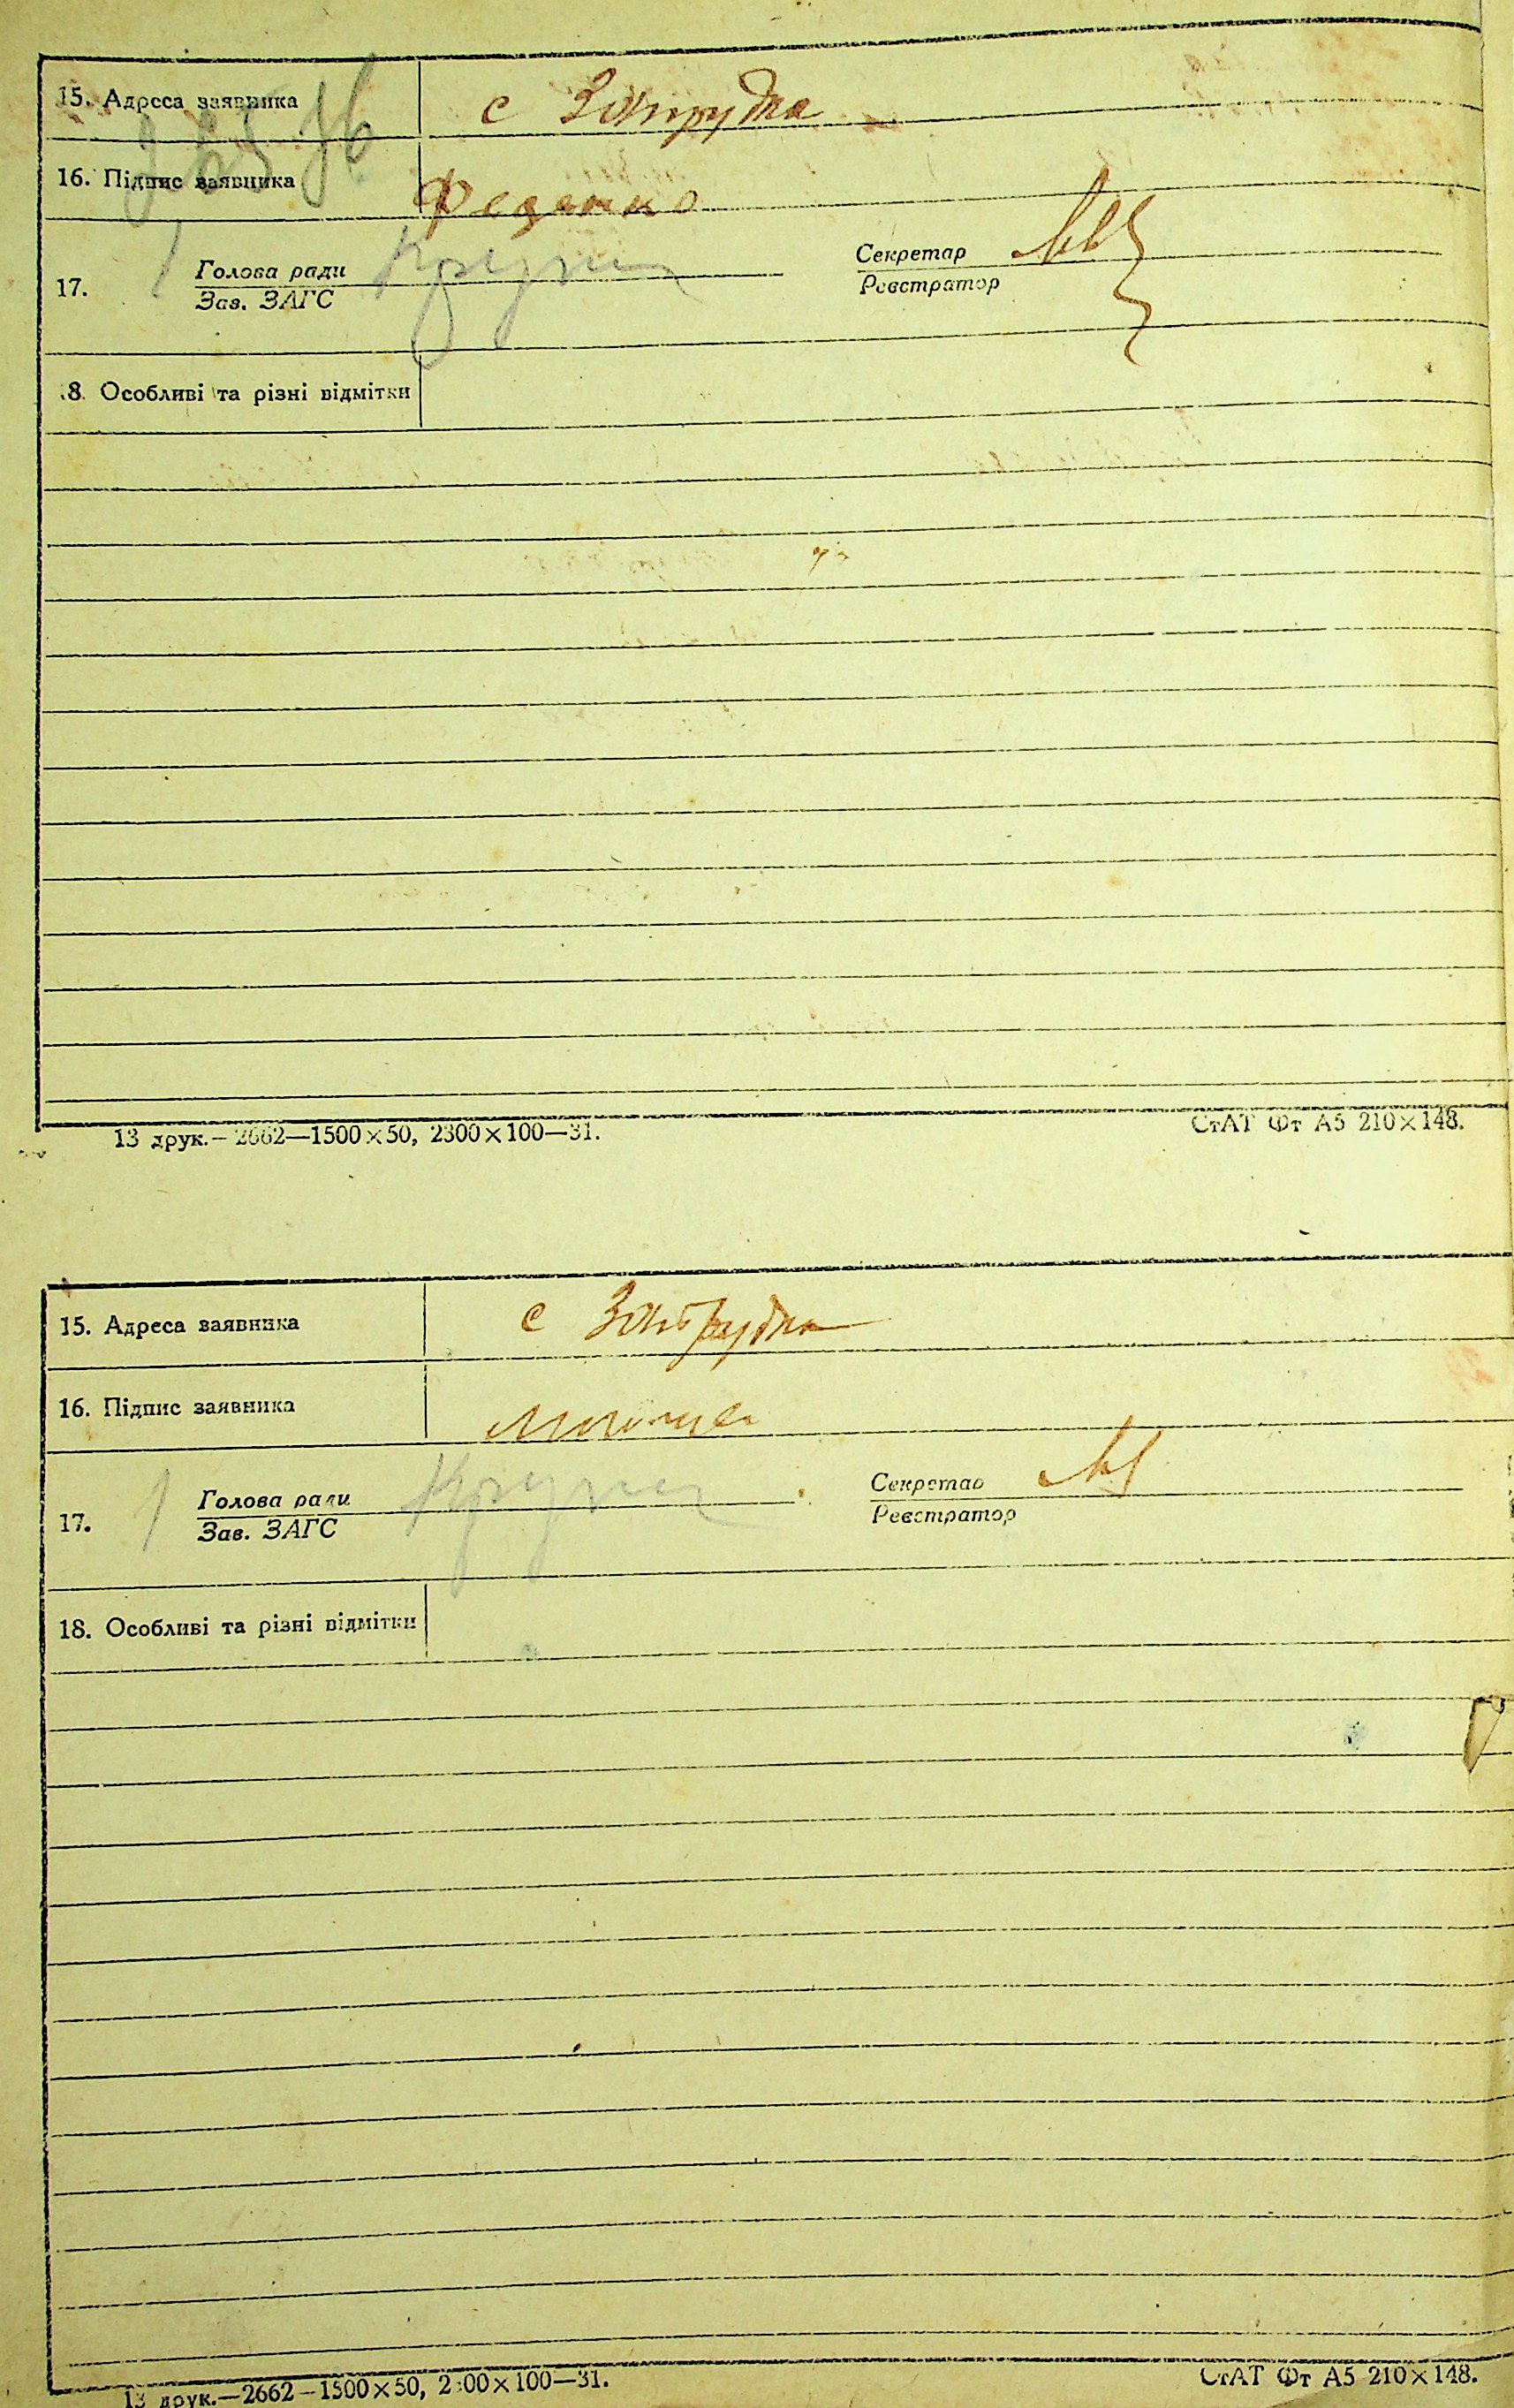 15. Адреса заявника с Запрудка
16. Підпис заявника Федятко
17. Голова ради Секретар
Зав. ЗАГС Реєстратор
8. Особливі та різні відмітки
13 друк.—2662—1500×50, 2300×100—31. СтАТ Фт А5 210×148.
15. Адреса заявника с Запрудка
16. Підпис заявника
17. Голова ради Секретар
Зав. ЗАГС Реєстратор
18. Особливі та різні відмітки
13 друк.—2662—1500×50, 2300×100—31. СтАТ Фт А5 210×148.